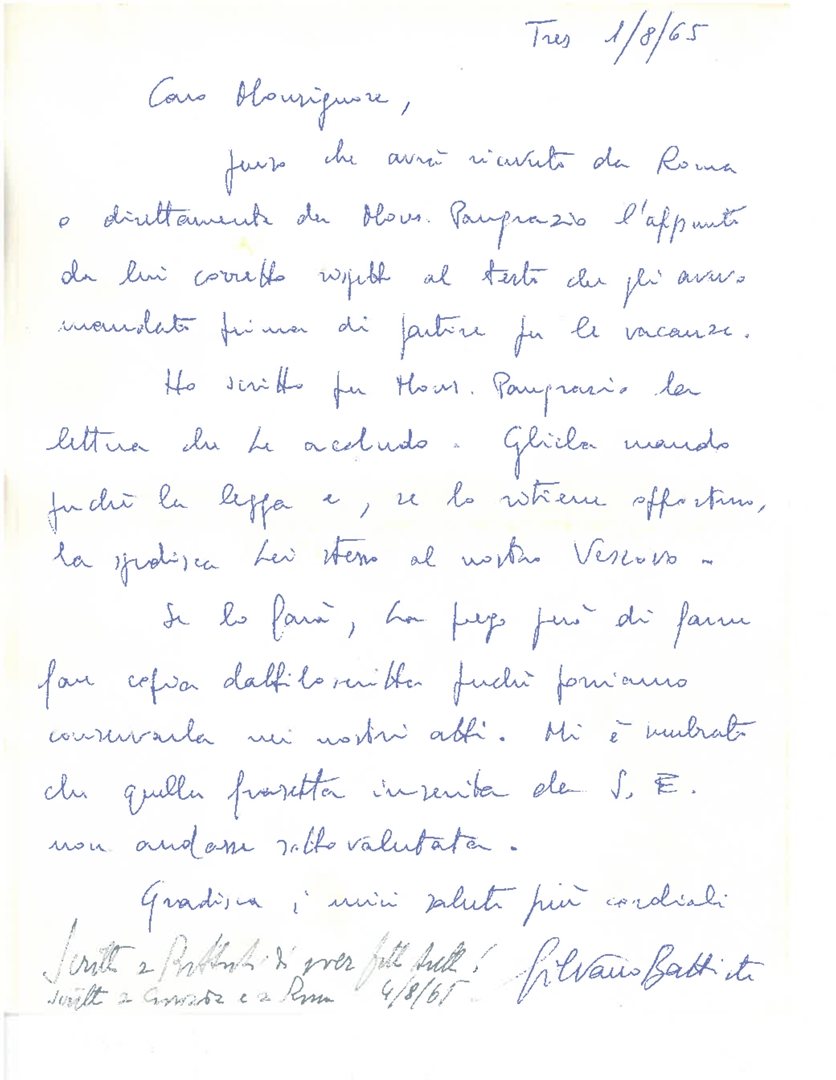 Tres 1/8/65
Caro Monsignore,
penso che avrà ricevuto da Roma
o direttamente da Mons. Pangrazio l'appunto
da lui corretto rispetto al testo che gli avevo
mandato prima di partire per le vacanze.
Ho scritto per Mons. Pangrazio la
lettera che Le accludo. Gliela mando
perché la legga e, se lo ritiene opportuno,
la spedisca Lei stesso al nostro Vescovo.
Se lo farà, La prego però di farne
fare copia dattiloscritta perché possiamo
conservarla nei nostri atti. Mi è sembrato
che quella frasetta inserita da S. E.
non andasse sottovalutata.
Gradisca i miei saluti più cordiali
Silvano Battisti
Scritto a Battisti di aver fatto tutto!
scritto a Gorizia e a Roma 4/8/65